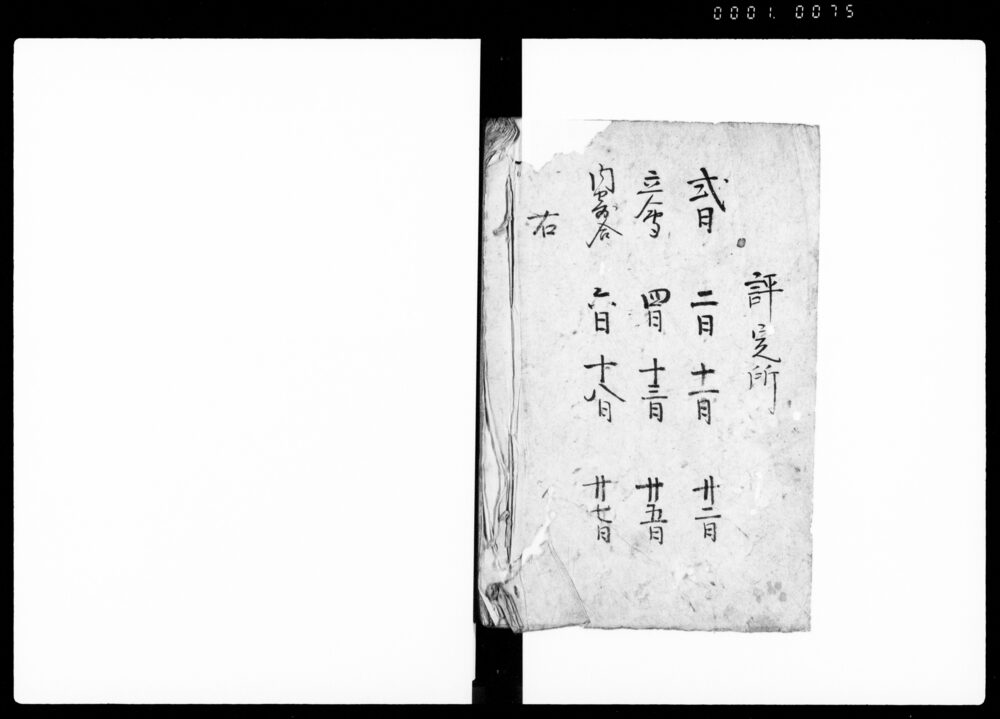 0001. 0075
評定所
式日 二日 十一日 廿二日
立会 四日 十三日 廿五日
内寄合 六日 十八日 廿七日
右